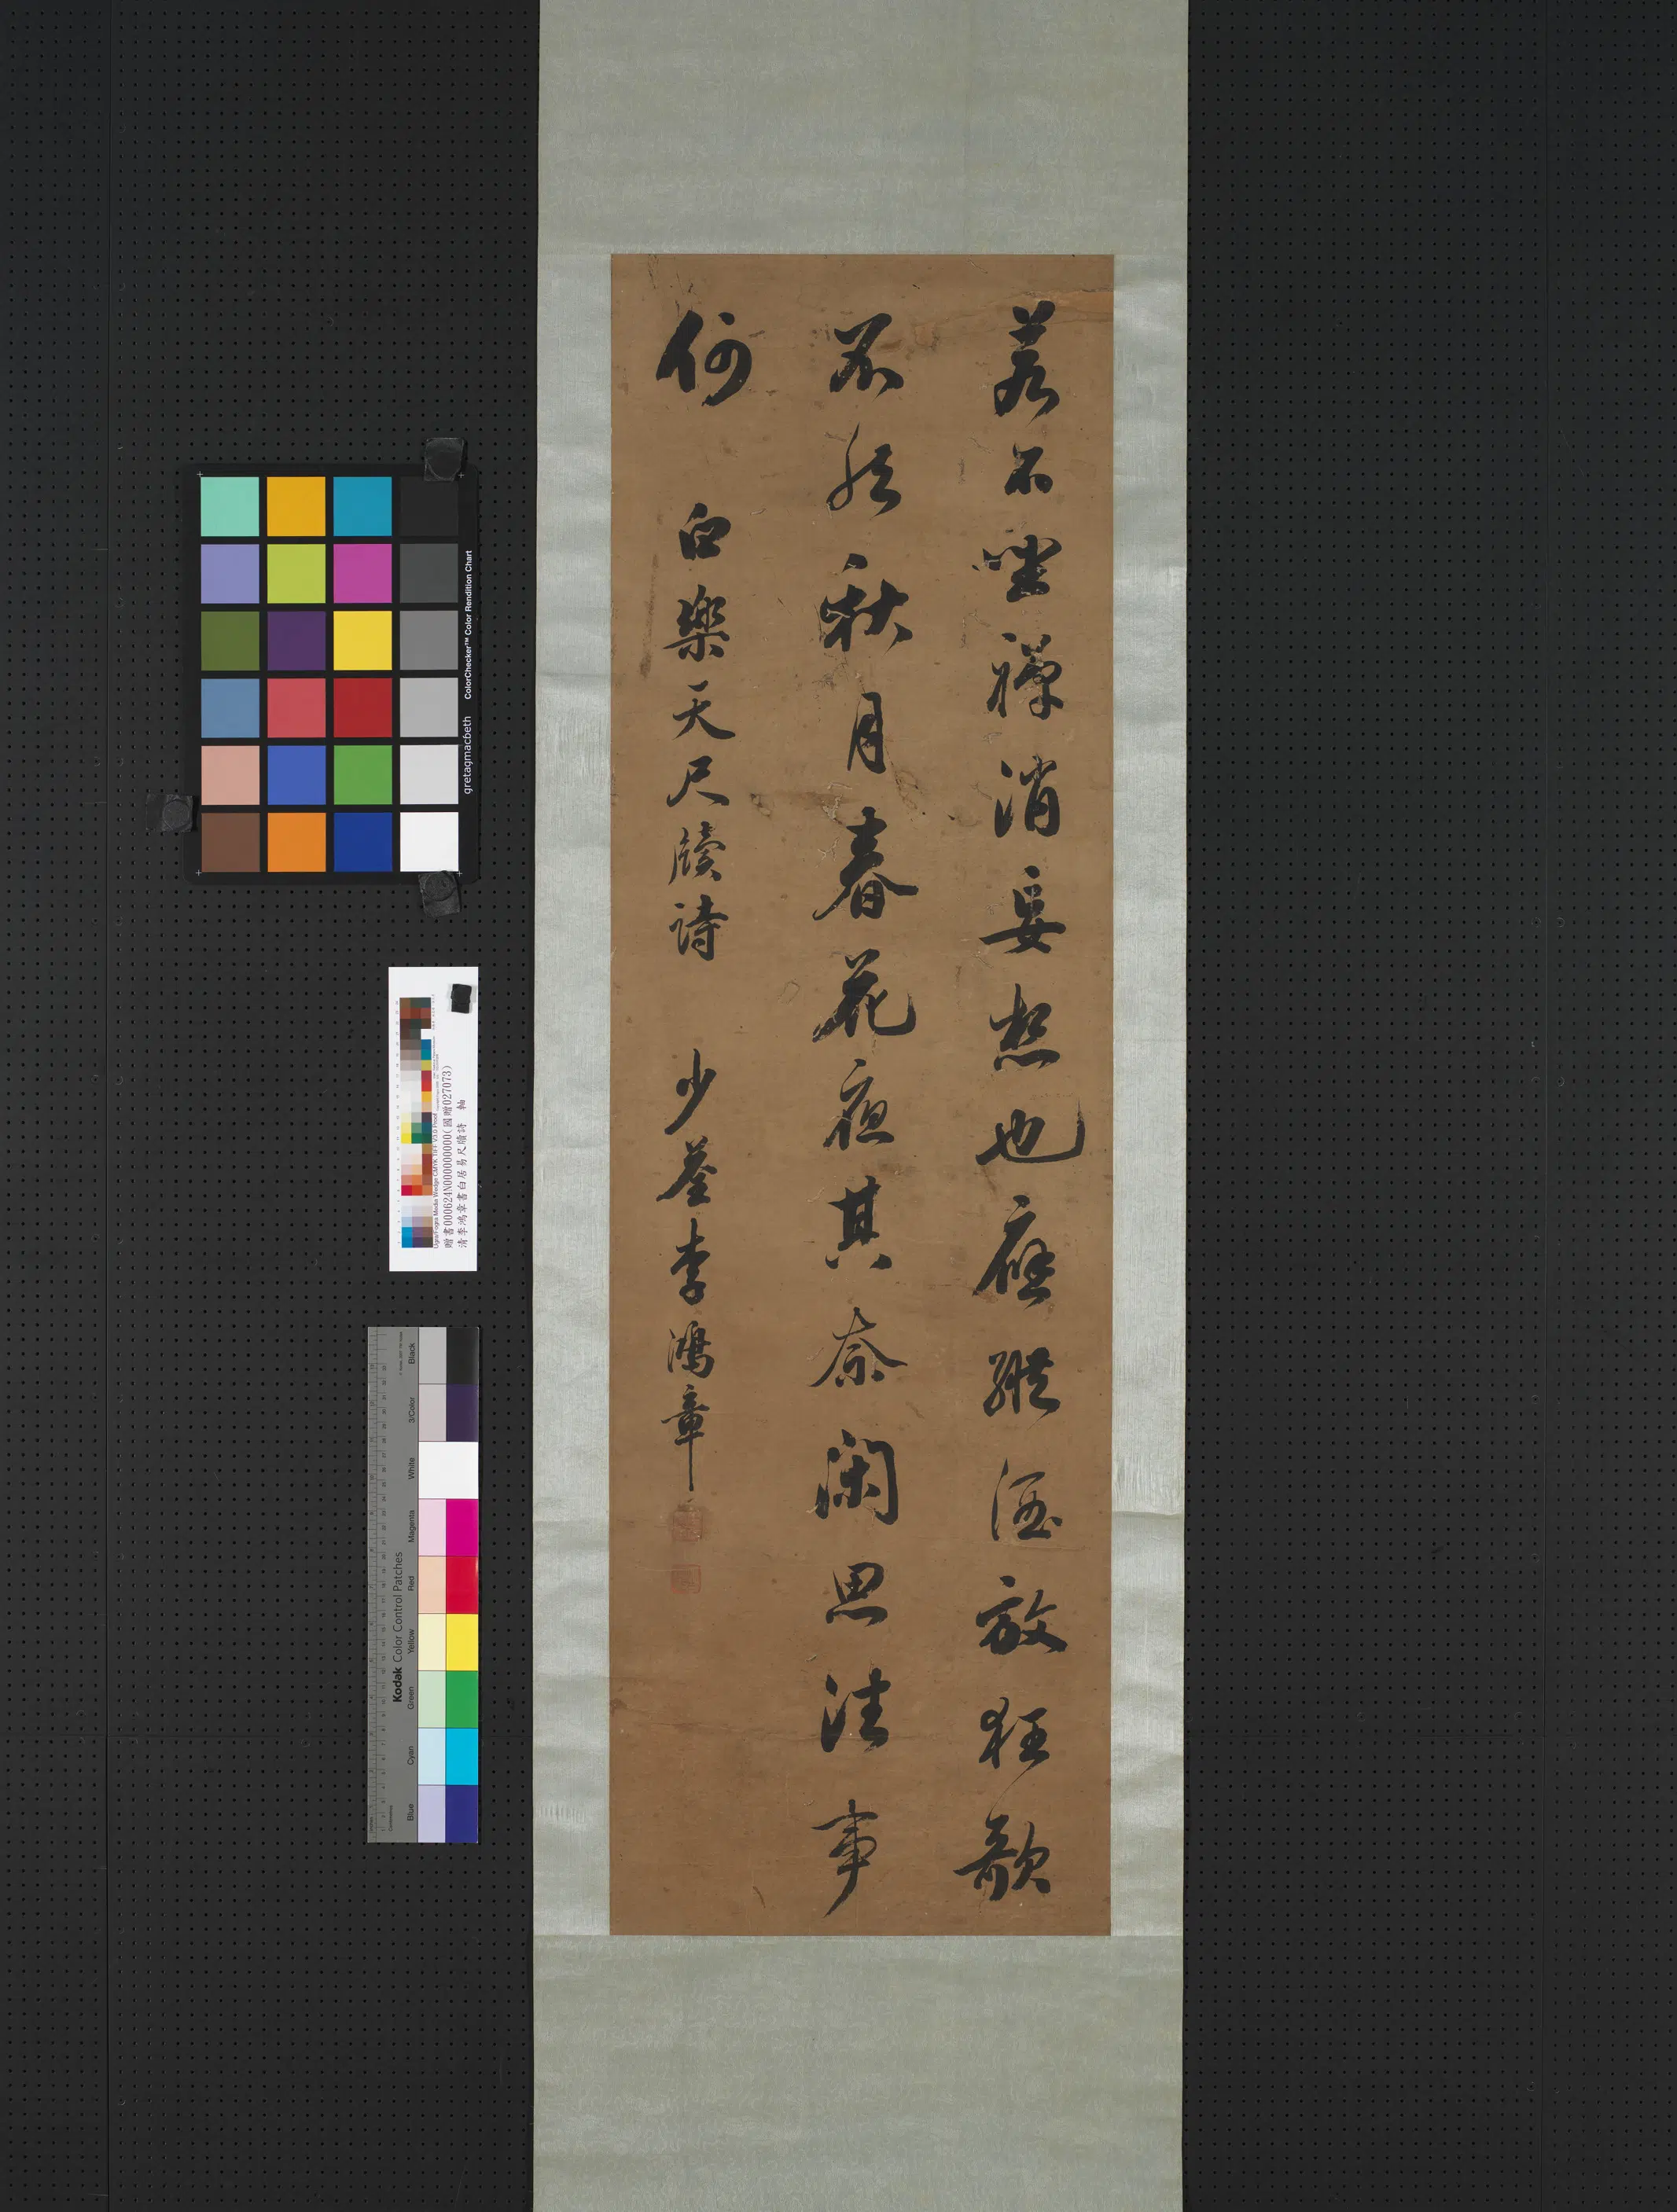 若不坐禪消妄想也應縱酒放狂歌
不然秋月春花夜其奈閑思往事
何 白樂天尺牘詩 少荃李鴻章
gretagmacbeth ColorChecker™ Color Rendition Chart
贈書000624N000000000(國贈027073)
清李鴻章書白居易尺牘詩 軸
Kodak Color Control Patches
Blue Cyan Green Yellow Red Magenta White 3/Color Black